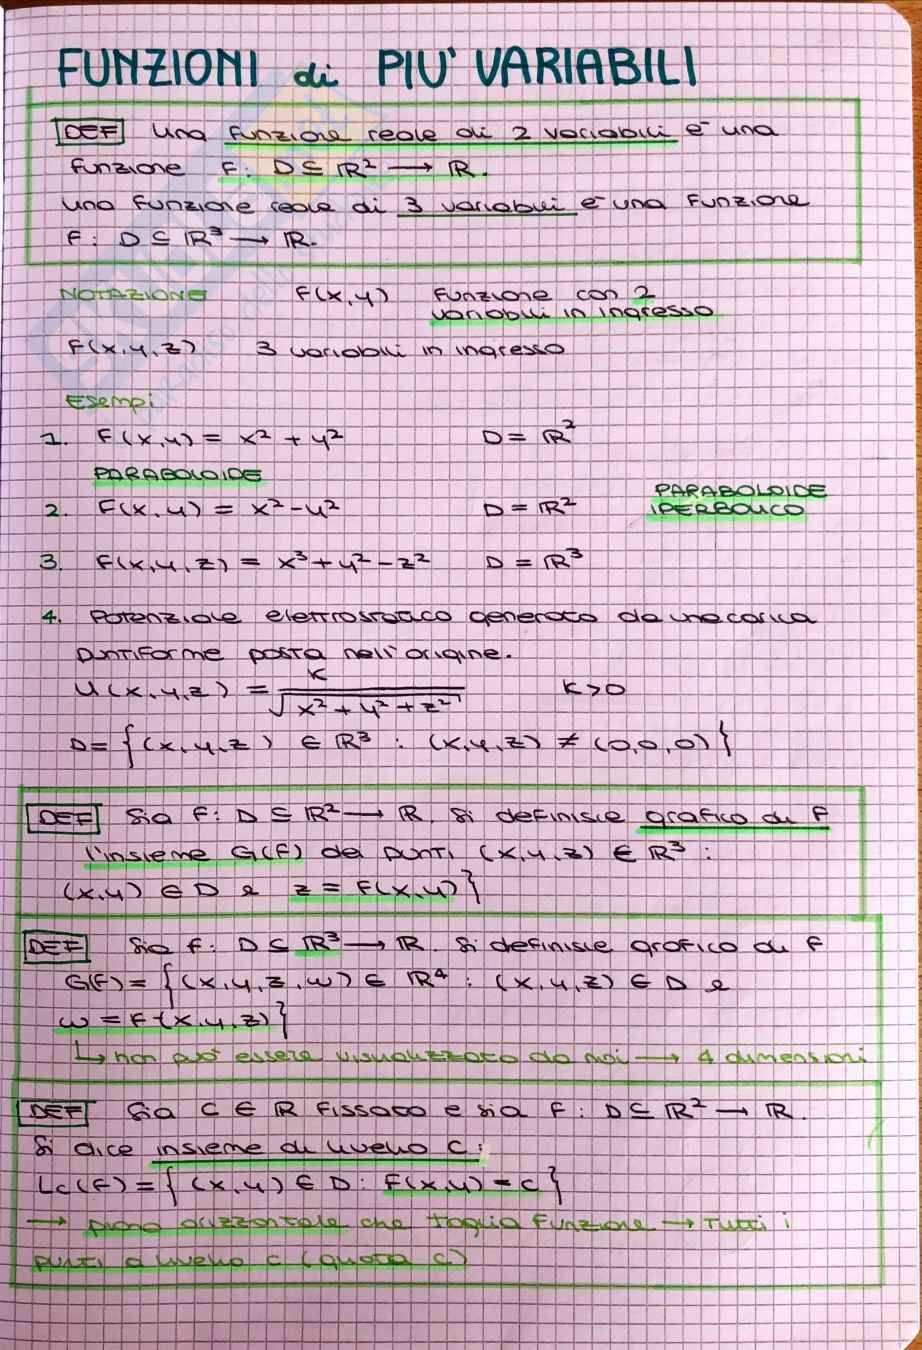 FUNZIONI di PIU' VARIABILI
DEF Una funzione reale di 2 variabili è una
funzione F: D ⊆ ℝ² → ℝ.
una funzione reale di 3 variabili è una funzione
F: D ⊆ ℝ³ → ℝ.
NOTAZIONE F(x,y) funzione con 2
variabili in ingresso
F(x,y,z) 3 variabili in ingresso
Esempi
1. F(x,y) = x² + y² D = ℝ²
PARABOLOIDE
2. F(x,y) = x² - y² D = ℝ² PARABOLOIDE
IPERBOLICO
3. F(x,y,z) = x³ + y² - z² D = ℝ³
4. Potenziale elettrostatico generato da una carica
puntiforme posta nell'origine.
U(x,y,z) = K / √(x² + y² + z²) K > 0
D = {(x,y,z) ∈ ℝ³ : (x,y,z) ≠ (0,0,0)}
DEF Sia F: D ⊆ ℝ² → ℝ. Si definisce grafico di F
l'insieme G(F) dei punti (x,y,z) ∈ ℝ³ :
(x,y) ∈ D e z = F(x,y)}
DEF Sia F: D ⊆ ℝ³ → ℝ. Si definisce grafico di F
G(F) = {(x,y,z,w) ∈ ℝ⁴ : (x,y,z) ∈ D e
w = F(x,y,z)}
↳ non può essere visualizzato da noi → 4 dimensioni
DEF Sia C ∈ ℝ fissato e sia F: D ⊆ ℝ² → ℝ.
Si dice insieme di livello C:
Lc(F) = {(x,y) ∈ D : F(x,y) = C}
→ piano orizzontale che taglia funzione → Tutti i
punti a livello C (quota C)